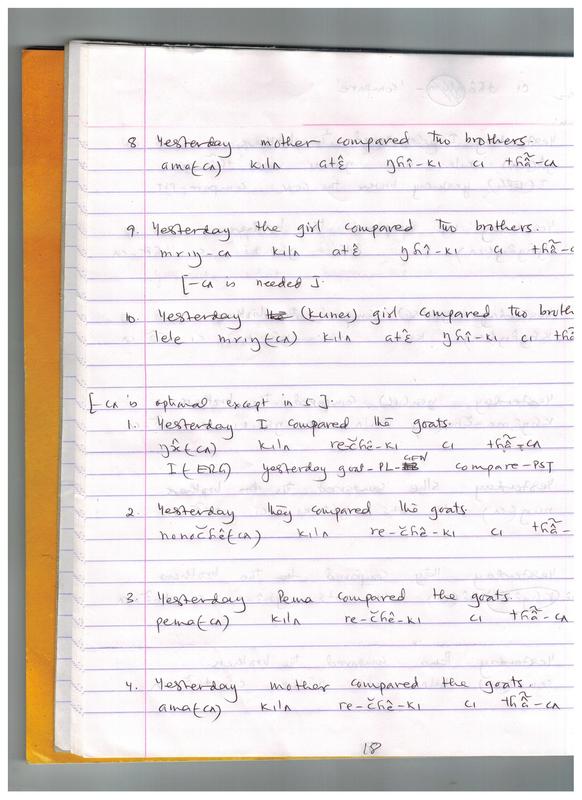 8 Yesterday mother compared two brothers.
ama(-cʌ) kilʌ atɛ̂ ŋɦî-kı cı tɦã̂-cʌ
9. Yesterday the girl compared two brothers.
mrıŋ-cʌ kilʌ atɛ̂ ŋɦî-kı cı tɦã̂-c
[-cʌ is needed].
10. Yesterday (Kunes) girl compared two broth
lele mrıŋ(-cʌ) kılʌ atɛ̂ ŋɦî-kı cı tɦã̂
[-cʌ is optional except in 5].
1. Yesterday I compared the goats.
ŋɤ̂(-cʌ) kılʌ re-čɦê-kı cı tɦã̂-cʌ
I(-ERG) yesterday goat-PL-GEN compare-PST
2. Yesterday they compared the goats
nonočɦê(-cʌ) kılʌ re-čɦê-kı cı tɦã̂-
3. Yesterday Pema compared the goats.
pema(-cʌ) kılʌ re-čɦê-kı cı tɦã̂-cʌ
4. Yesterday mother compared the goats.
ama(-cʌ) kılʌ re-čɦê-kı cı tɦã̂-cʌ
18